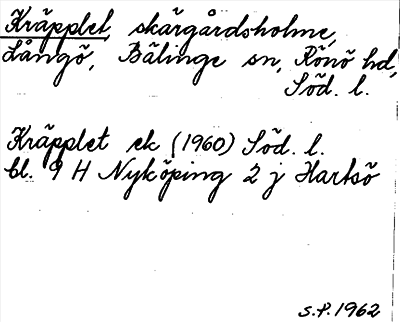 Kräpplet, skärgårdsholme,
Långö, Bälinge sn, Rönö hd,
Söd. l.
Kräpplet ek (1960) Söd. l.
bl. 9 H Nyköping 2 j Hartsö
S.P. 1962